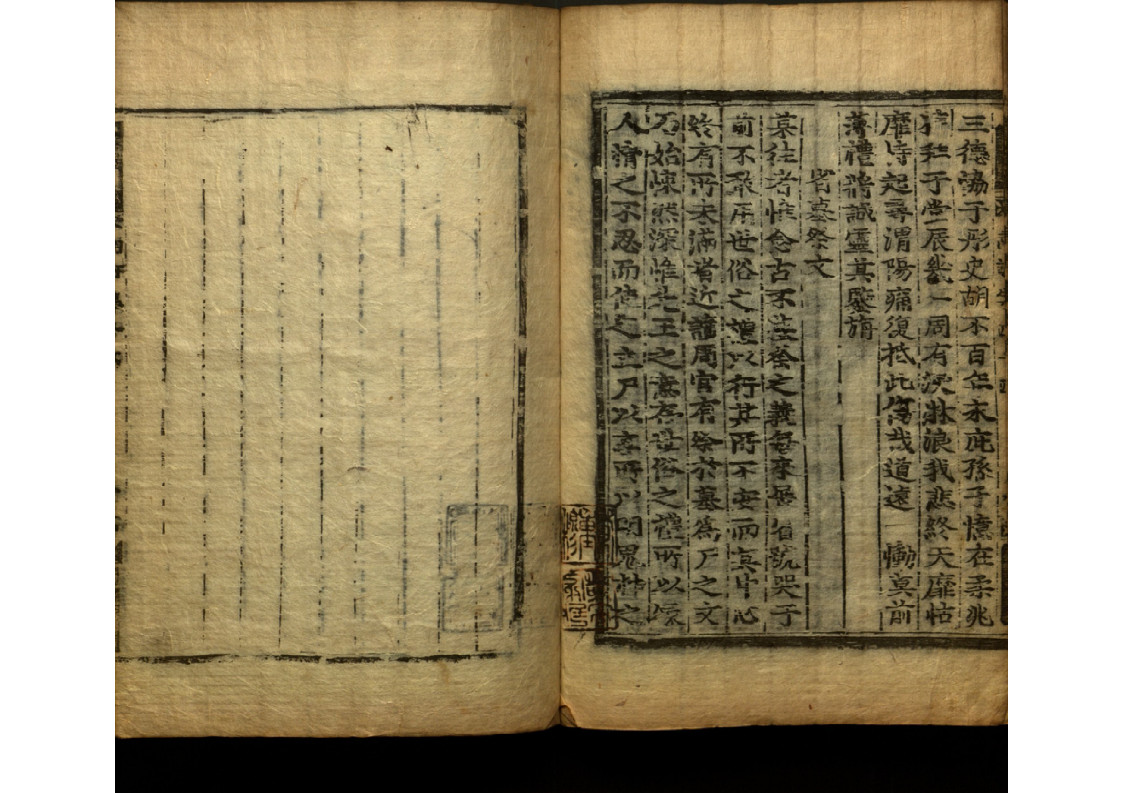 三德協于彤史胡不百年未庇孫子憶在柔兆
于 辰幾一周有淚 浪我悲終天靡怙
靡恃起尋渭陽痛復抵此傷哉道遠一慟莫前
薄禮將誠盛其 旃
省墓祭文
某往者惟念古不 之義每來 省號哭于
前不敢用世俗之禮以行其所不安而其中心
終有所未滿者近讀周官有祭於墓爲尸之文
乃始悚然深惟先王之意存世俗之禮所以
人情之不忍而使之立尸以享所以明鬼神之